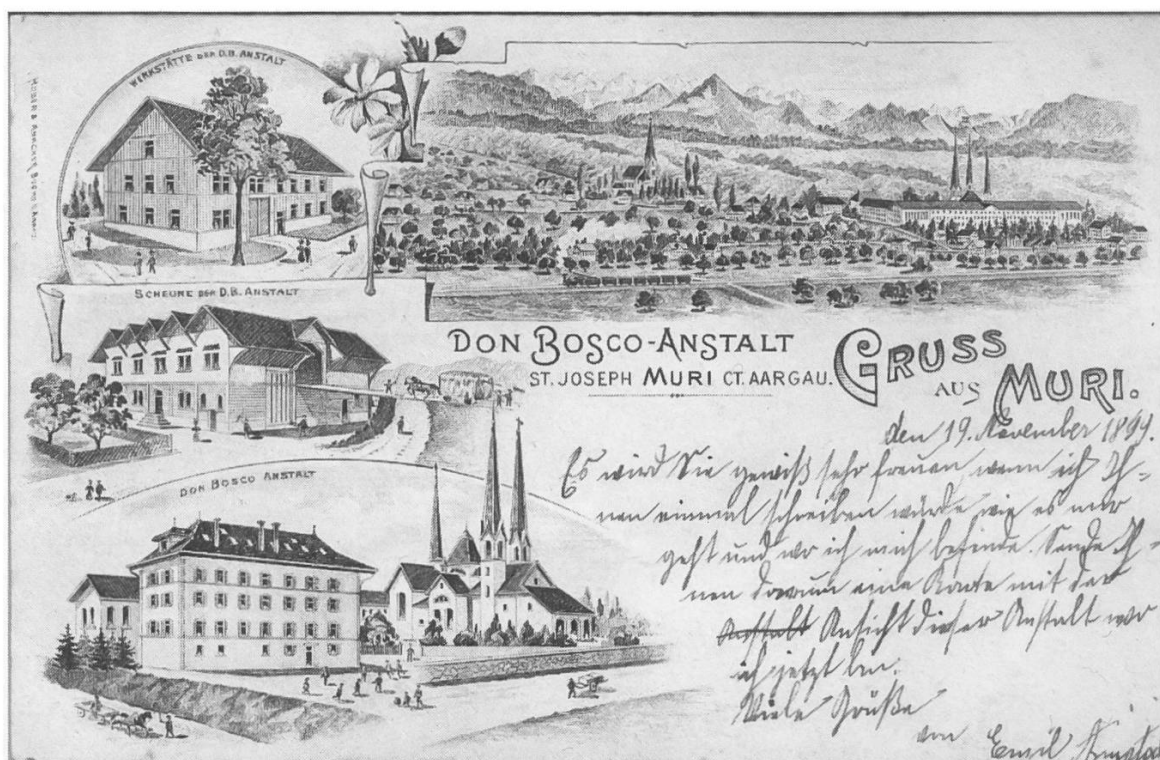 WERKSTÄTTE DER D.B. ANSTALT
SCHEUNE DER D.B. ANSTALT
DON BOSCO ANSTALT
DON BOSCO-ANSTALT
ST. JOSEPH MURI CT. AARGAU.
GRUSS
AUS MURI.
den 19. November 1899.
Es wird Sie gewiß sehr freuen, wenn ich Ih-
nen einmal schreiben würde wie es mir
geht und wo ich mich befinde. Sende Ih-
nen darum eine Karte mit der
Anstalt Ansicht dieser Anstalt wo
ich jetzt bin.
Viele Grüße
von
Emil